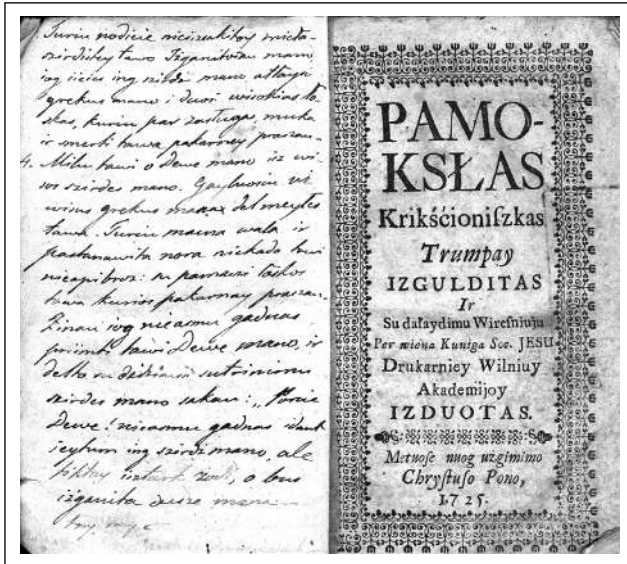 Turiu nodieie nieiszakitoy mieła-
szirdistey tawo Izganitoiau mano
iog iieius ing szirdi mano atłaysi
grekus mano i duosi wisokias ło-
skas, kuriu par zasługas, muka
ir smerti tawa pakarney praszau
4. Miliu tawi o Dewe mano isz wi-
sos szirdes mano. Gayluosiu uz
wisus grekus manax del meyles
tawa. Turiu macna wala ir
pastanawita nora niekada tawi
nieapibroz: su pamaczi łoskos
tawa kurios pakarnay praszau.
Zinau iog nieasmu gadnas
priimti tawi Dewe mano, ir
delto su didziausiu sutrinimu
szirdes mano sakau: „Ponie
Dewe! nieasmu gadnas idant
ieytum ing szirdi mano, ale
tiktay isztark zodi, o bus
izganita dusze mana
PAMO-
KSŁAS
Krikśćioniſzkas
Trumpay
IZGULDITAS
Ir
Su dałaydimu Wireſniuju
Per wiena Kuniga Soc. JESU
Drukarniey Wilniuy
Akademijoy
IZDUOTAS.
Metuoſe nuog uzgimimo
Chryſtuſo Pono,
1725.